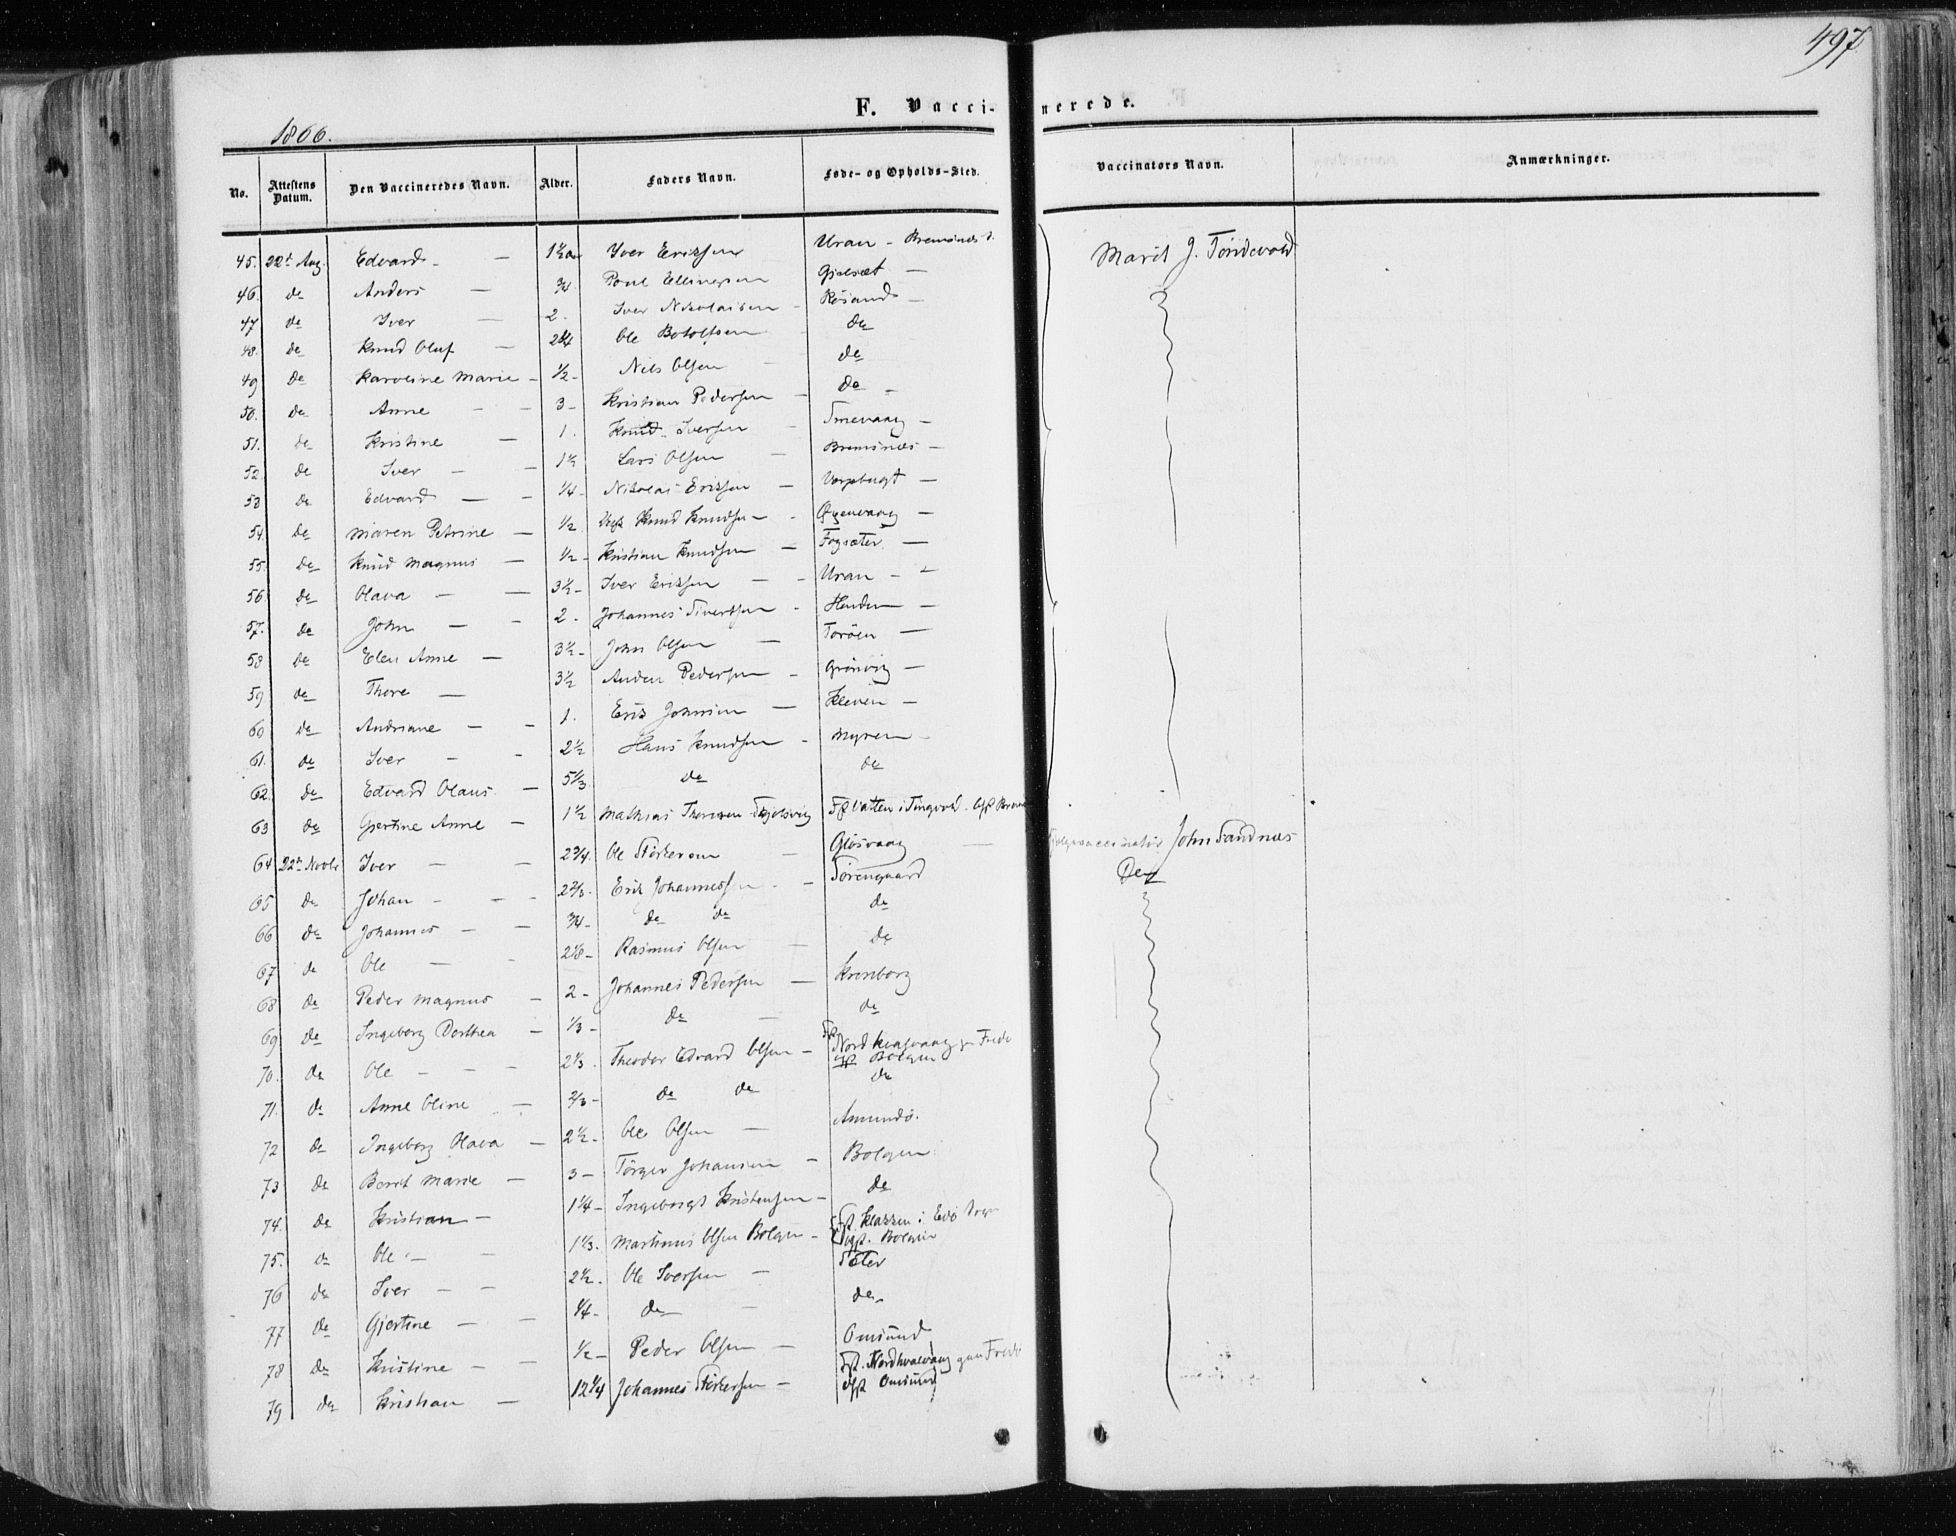 497
F. Vaccinerede.
1866.
No. Attestens Datum. Den Vaccineredes Navn. Alder. Faders Navn. Føde- og Opholds-Sted. Vaccinators Navn. Anmærkninger.
45. 22de Aug. Edvard - 1½ Iver Eriksen Uran - Bremsnæs Marit J. Tøndevold
46. do Anders - ¾ Poul Ellingsen Gjelsæt -
47 do Iver - 2. Iver Nikolaisen - Røsand -
48. do Knud Oluf - 2¾ Ole Botolfsen do
49 do Karoline Marie - ½ - Nils Olsen - do
50. do Anne - 3 - Kristian Pedersen - do -
51. do Kristine - 1. Knud Iversen - Smevaag -
52 do Iver - 1½ Lars Olsen - Bremsnæs -
53 do Edvard - ¼ - Nikolai Eriksen - Varpebugt -
54. do Maren Petrine - ½ Knud Knudsen - Øyenvaag -
55. do Knud Magnus - ½ - Kristian Knudsen - Fogsæter -
56 do Olava - 3½ - Iver Eriksen - Uran -
57. do John - 2. Johannes Sivertsen - Henden -
58 do Elen Anne - 3½ - John Olsen - Torøen -
59 do Thore - 3½ Anders Pedersen - Grønvig -
60 do Andriane - 1. Erik Johnsen - Kleven -
61. do Iver - 2½ Hans Knudsen - Myren -
62. do Edvard Olaus - 5⅓ do do
63 do Gjertine Anne - 1½ Mathias Thoresen Fdst Vatten i Tingvold. Opst Brems
64 22de Novbr Iver - 2¾. Ole Størkersen - Gløsvaag - Hjelpevaccinatør John Sandnæs
65 do Johan - 2⅔. Erik Johannessen - Sørengaard Do
66 do Johannes - ¾ - do do do
67 do Ole - Rasmus Olsen - do
68 do Peder Magnus - 2 - Johannes Pedersen - Krenborg
69 do Ingeborg Dorthea - ⅓ - do - do
70. do Ole - 2⅓. Theodor Edvard Olsen - Fdst Nordhvalvaag Frede opst Bolgen
71. do Anne Oline - ⅔ - do do do
72 do Ingeborg Olava - 2½ - Ole Olsen - Amundø.
73 do Berit Marie - 3 - Tørger Johansen - Bolgen
74. do Kristian - 1¼ - Ingebrigt Kristensen - do
75. do Ole - 1⅓. Martinus Olsen Bolgen - Fdst. Klakken i Edø Opst. Bolgen
76 do Iver - 2½. Ole Iversen - Sæter
77 do Gjertine - ¼ - do - do -
78 do Kristine - ½ - Peder Olsen - Omsund
79 do Kristian - 12¼ Johannes Størkersen - Fdst. Nordhvalvaag Frede Opst Omsund